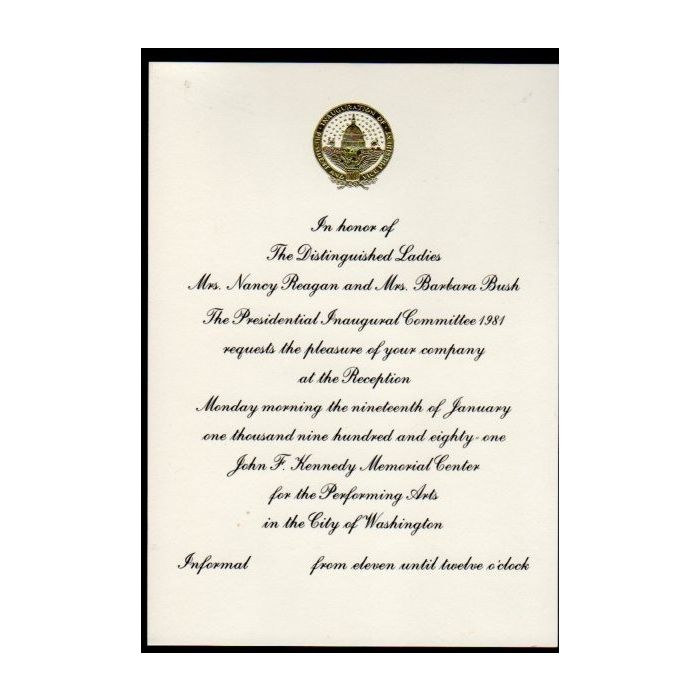 INAUGURATION OF
PRESIDENT AND VICE PRESIDENT
In honor of
The Distinguished Ladies
Mrs. Nancy Reagan and Mrs. Barbara Bush
The Presidential Inaugural Committee 1981
requests the pleasure of your company
at the Reception
Monday morning the nineteenth of January
one thousand nine hundred and eighty-one
John F. Kennedy Memorial Center
for the Performing Arts
in the City of Washington
Informal from eleven until twelve o'clock